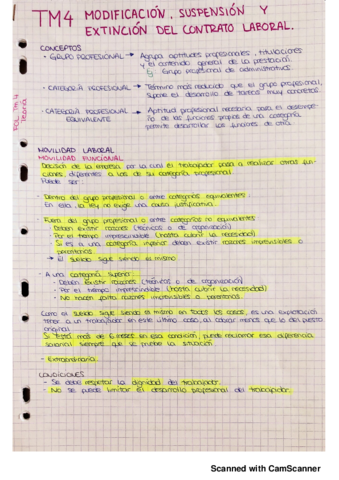 TM4 MODIFICACIÓN, SUSPENSIÓN Y
EXTINCIÓN DEL CONTRATO LABORAL.
FOL TM 4
Teoría
CONCEPTOS
- GRUPO PROFESIONAL → Agrupa aptitudes profesionales, titulaciones
y el contenido general de la prestación.
Grupo profesional de administrativos.
- CATEGORÍA PROFESIONAL → Término más reducido que el grupo profesional,
supone el desarrollo de tareas muy concretas.
- CATEGORÍA PROFESIONAL → Aptitud profesional necesaria para el desempe-
EQUIVALENTE ño de las funciones propias de una categoría
permite desarrollar las funciones de otra.
MOVILIDAD LABORAL
MOVILIDAD FUNCIONAL
Decisión de la empresa por la cual el trabajador pasa a realizar otras fun-
ciones diferentes a las de su categoría profesional.
Puede ser:
- Dentro del grupo profesional o entre categorías equivalentes:
En ella, la ley no exige una causa justificativa.
- Fuera del grupo profesional o entre categorías no equivalentes:
- Deben existir razones (técnicas o de organización)
- Por el tiempo imprescindible (hasta cubrir la necesidad)
- Si es a una categoría inferior deben existir razones imprevisibles o
perentorias.
→ El sueldo sigue siendo el mismo
- A una categoría superior:
- Deben existir razones (técnicas o de organización)
- Por el tiempo imprescindible (hasta cubrir la necesidad)
- No hacen falta razones imprevisibles o perentorias.
Como el sueldo sigue siendo el mismo en todos los casos, es una explotación
tener a un trabajador en este último caso, al cobrar menos que lo del puesto
original.
Si está más de 6 meses en esa condición, puede reclamar esa diferencia
salarial siempre que se pruebe la situación.
- Extraordinaria
CONDICIONES
- Se debe respetar la dignidad del trabajador.
- No se puede limitar el desarrollo profesional del trabajador.
Scanned with CamScanner